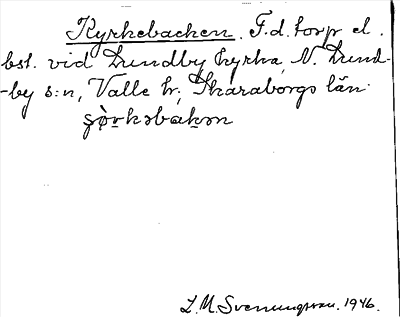 Kyrkebacken. F.d. torp el.
bst. vid Lundby kyrka, N. Lund-
-by s:n, Valle hr; Skaraborgs län.
L.M. Svenungsson. 1946.